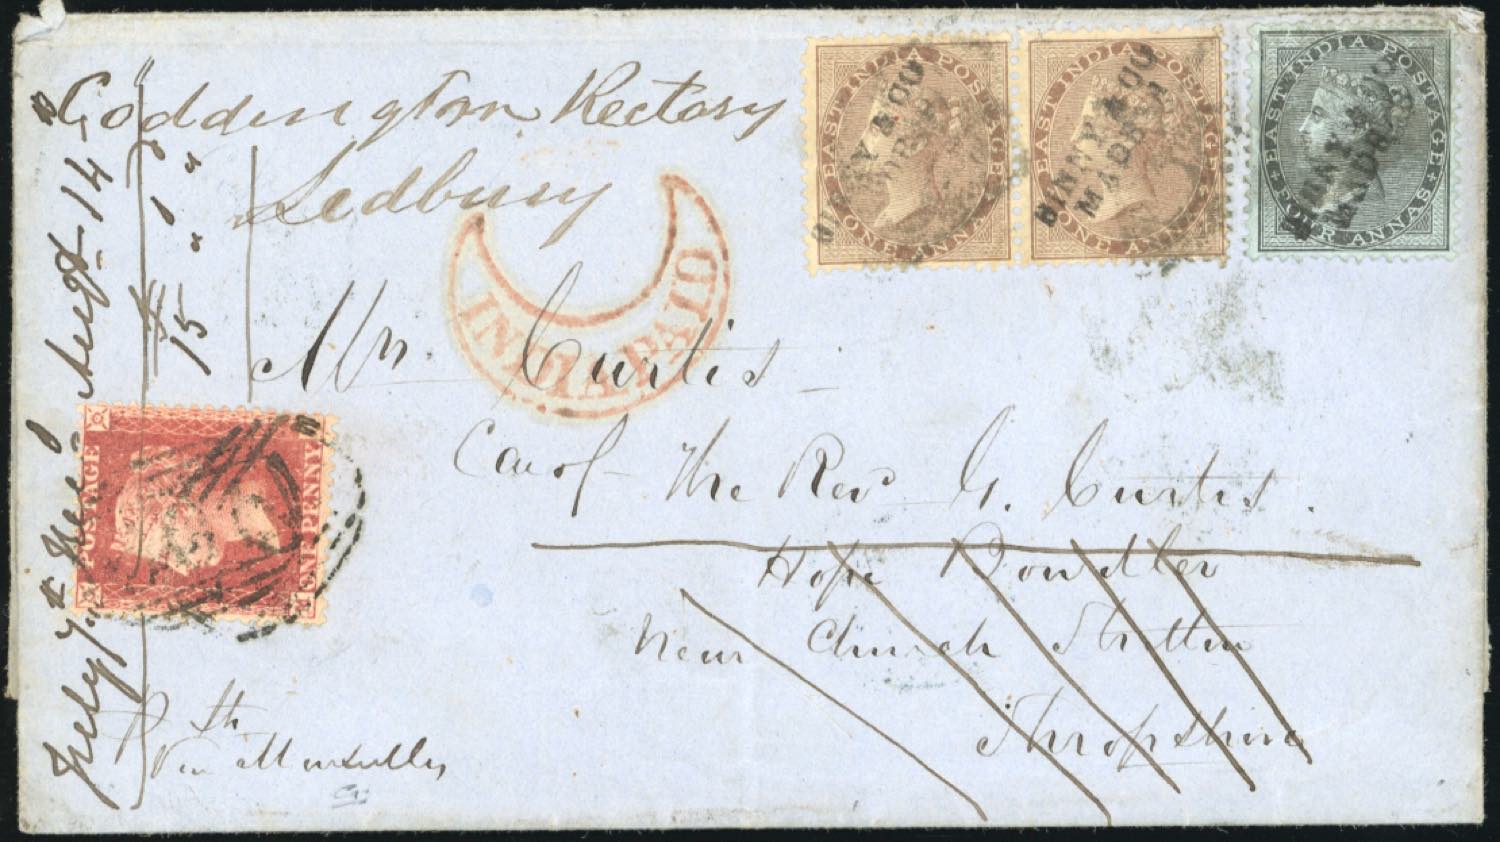 Coddington Rectory
Ledbury
EAST INDIA POSTAGE
ONE ANNA
BINNY & CO
MADRAS
EAST INDIA POSTAGE
ONE ANNA
BINNY & CO
MADRAS
EAST INDIA POSTAGE
FOUR ANNAS
BINNY & CO
MADRAS
INDIA PAID
Mr. Curtis
Care of The Revd G. Curtis.
Hope Bowdler
Near Church Stretton
Shropshire
Via Marseilles
POSTAGE
ONE PENNY
Augt 14
" 1 "
15